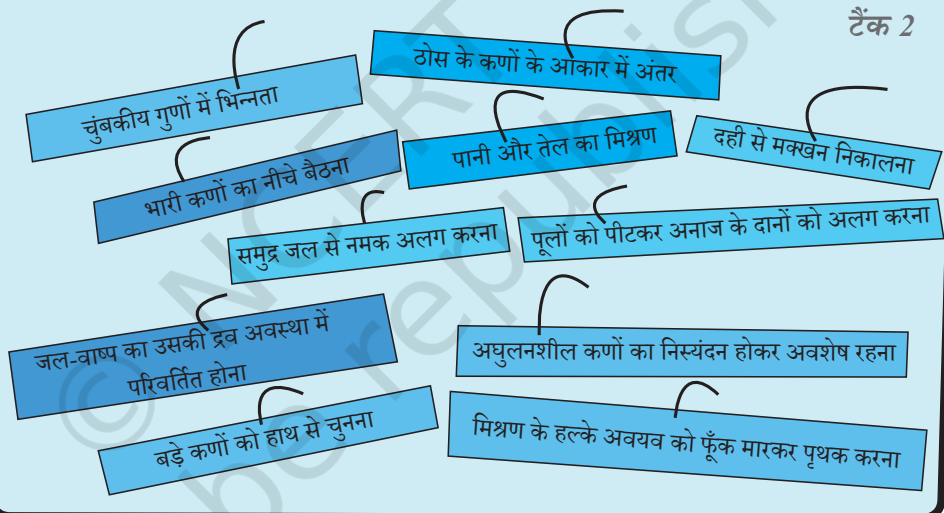 टैंक 2
ठोस के कणों के आकार में अंतर
चुंबकीय गुणों में भिन्नता
पानी और तेल का मिश्रण
दही से मक्खन निकालना
भारी कणों का नीचे बैठना
समुद्र जल से नमक अलग करना
पूलों को पीटकर अनाज के दानों को अलग करना
जल-वाष्प का उसकी द्रव अवस्था में
परिवर्तित होना
अघुलनशील कणों का निस्यंदन होकर अवशेष रहना
बड़े कणों को हाथ से चुनना
मिश्रण के हल्के अवयव को फूँक मारकर पृथक करना
© NCERT
be republis